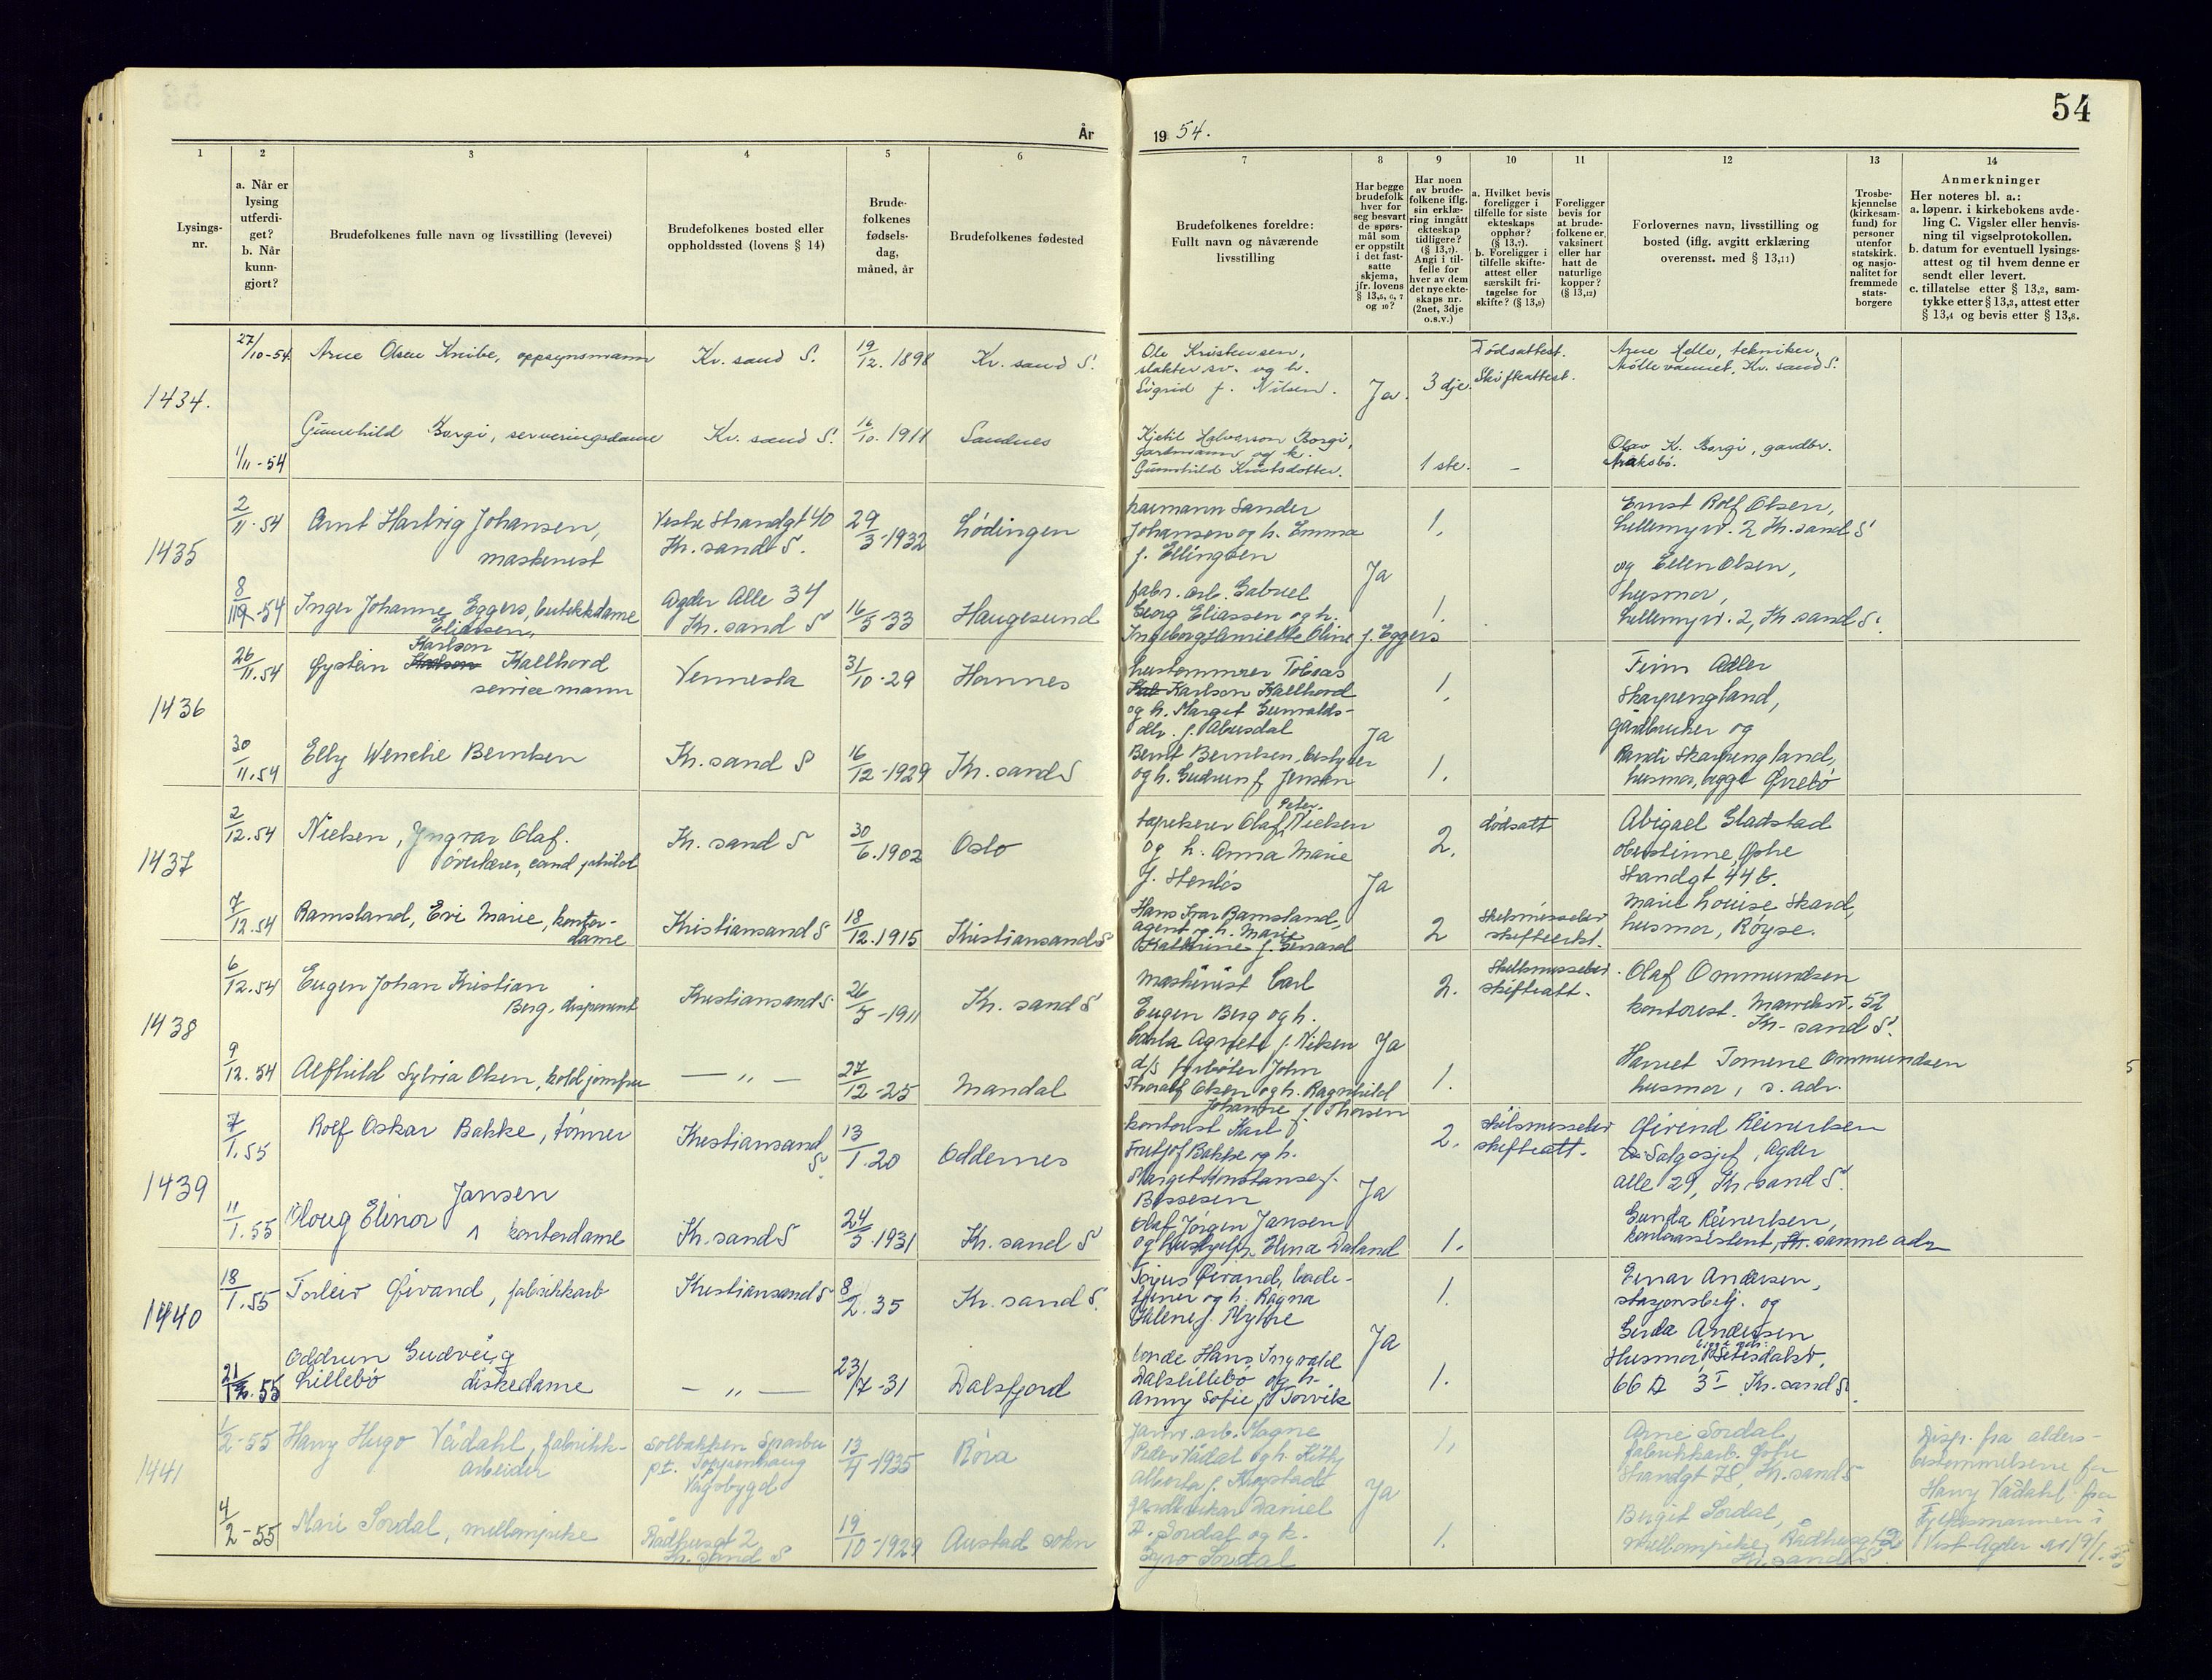 54
År
19 54.
1
2
3
4
5
6
7
8
9
10
11
12
13
14
Lysings-
nr.
a. Når er
lysing
utferdi-
get?
b. Når
kunn-
gjort?
Brudefolkenes fulle navn og livsstilling (levevei)
Brudefolkenes bosted eller
oppholdssted (lovens § 14)
Brude-
folkenes
fødsels-
dag,
måned, år
Brudefolkenes fødested
Brudefolkenes foreldre:
Fullt navn og nåværende
livsstilling
Har begge
brudefolk
hver for
seg besvart
de spørs-
mål som
er oppstilt
i det fast-
satte
skjema,
jfr. lovens
§ 13,5, 6, 7
og 10?
Har noen
av brude-
folkene iflg.
sin erklæ-
ring inngått
ekteskap
tidligere?
(§ 13,7).
Angi i til-
felle for
hver av dem
det nye ekte-
skaps nr.
(2net, 3dje
o.s.v.)
a. Hvilket bevis
foreligger i
tilfelle for siste
ekteskaps
opphør?
(§ 13,7).
b. Foreligger i
tilfelle skifte-
attest eller
særskilt fri-
tagelse for
skifte? (§ 13,9)
Foreligger
bevis for
at brude-
folkene er
vaksinert
eller har
hatt de
naturlige
kopper?
(§ 13,12)
Forlovernes navn, livsstilling og
bosted (iflg. avgitt erklæring
overensst. med § 13,11)
Trosbe-
kjennelse
(kirkesam-
fund) for
personer
utenfor
statskirk.
og nasjo-
nalitet for
fremmede
stats-
borgere
Anmerkninger
Her noteres bl. a.:
a. løpenr. i kirkebokens avde-
ling C. Vigsler eller henvis-
ning til vigselprotokollen.
b. datum for eventuell lysings-
attest og til hvem denne er
sendt eller levert.
c. tillatelse etter § 13,2, sam-
tykke etter § 13,3, attest etter
§ 13,4 og bevis etter § 13,8.
1434.
27/10-54
Arne Olsen Knibe, oppsynsmann
Kr. sand S.
19/12. 1898
Kr. sand S.
Ole Kristensen,
slakter sv. og h.
Sigrid f. Nilsen.
Ja.
3 dje.
Dødsattest.
Skifteattest.
Arne Helle, tekniker,
Møllevannet, Kr. sand S.
1/11-54
Gunnhild Borgi, serveringsdame
Kr. sand S.
16/10. 1911
Sandnes
Kjetil Halvorson Borgi,
gardmann og k.
Gunnhild Knutsdotter.
1 ste.
-
Olav K. Borgi, gardbr.
Åraksbø.
1435
2/11-54
Arnt Hartvig Johansen,
maskinist
Vestre Strandgt 40
Kr. sand S.
29/3-1932
Lødingen
havmann Sander
Johansen og h. Emma
f. Ellingsen
Ja
1.
Ernst Rolf Olsen,
Lillemyrv. 2 Kr. sand S
og Ellen Olsen,
husmor,
Lillemyrv. 2, Kr sand S.
8/11-54
Inger Johanne Eggers, butikkdame
Eliassen,
Agder Alle 34
Kr. sand S
16/5-33
Haugesund
fabr. arb. Gabriel
Georg Eliassen og h.
Ingeborg Henriette Oline f. Eggers
1.
1436
26/11.54
Karlson
Øystein Kallhord
servicemann
Vennesla
31/10-29
Hornnes
hustømmrer Tobias
Karlson Kallhord
og h. Margit Gunvalds-
dtr. f. Abusdal
Ja
1.
Finn Adler
Skarpengland,
gårdbruker og
Randi Skarpengland,
husmor, begge Øvrebø
30/11.54
Elly Wenche Berntsen
Kr. sand S
16/12-1929
Kr. sand S
Bernt Berntsen, bestyrer
og h. Gudrun f. Jensen
1.
1437
2/12.54
Nielsen, Yngvar Olaf.
overlærer, cand philol
Kr. sand S
30/6.1902
Oslo
Peter.
tapetserer Olaf Nielsen
og h. Anna Marie
f. Stenløs
Ja
2.
dødsatt
Abigael Gladstad
oberstinne, Østre
Strandgt 44 b.
Marie Louise Skard,
husmor, Røyse.
7/12.54
Ramsland, Evi Marie, kontor-
dame
Kristiansand S
18/12.1915
Kristiansand S
Hans Ivar Ramsland,
agent og h. Marie
Kathrine f. Genard
2
Skilsmissebev
skifteerkl.
1438
6/12.54
Eugen Johan Kristian
Berg, disponent
Kristiansand S.
26/5-1911
Kr. sand S
Maskinist Carl
Eugen Berg og h.
Carla Agnete f. Nilsen
Ja
2.
Skilsmissebev.
skifteatt.
Olaf Ommundsen
kontorist. Marviksv. 52
Kr. sand S.
9/12.54
Alfhild Sylvia Olsen, koldjomfru
— „ —
27/12-25
Mandal
d/s fyrbøter John
Thoralf Olsen og h. Ragnhild
Johanne f. Thorsen
1.
Harriet Tomene Ommundsen
husmor, s. adr.
1439
7/1.55
Rolf Oskar Bakke, tømrer
Kristiansand
S.
13/1.20
Oddernes
kontorist Karl
Fritjof Bakke og h.
Margit Konstanse f.
Bessesen
Ja
2.
Skilsmissebev
skifteatt.
Øivind Reinertsen
Salgssjef, Agder
alle 29, Kr. sand S.
11/1.55
Jansen
Oloug Elinor ʌ kontordame
Kr. sand S
24/5.1931
Kr. sand S
Olaf Jørgen Jansen
og hushjelp. Elina Daland
1.
Gunda Reinertsen,
kontorassistent, samme adr
1440
18/1.55
Torleiv Øivand, fabrikkarb
Kristiansand S
8/2.35
Kr. sand S.
Torjus Øivand, bade-
tjener og h. Ragna
Halene f. Myhre
Ja
1.
Einar Andersen,
stasjonsbetj. og
Gerda Andersen
begge adr.
Husmor Setesdalsv.
66 D 3 I Kr. sand S.
21/1.55
Oddrun Gudveig
Lillebø diskedame
— „ —
23/7-31
Dalsfjord
bonde Hans Ingvald
Dalslillebø og h.
Anny Sofie f. Torvik
1.
1441
1/2-55
Harry Hugo Vådahl, fabrikk-
arbeider
Solbakken Sparbu
pt. Toppenhaug
Vågsbygd
13/4-1935
Røra
Jarnv. arb. Magne
Peder Vådal og h. Kitty
Alberta f. Mogstad
Ja
1.
Arne Sordal,
fabrikkarb. Østre
Strandgt 78, Kr. sand S
Disp. fra alders-
bestemmelsene for
Harry Vådahl fra
Fylkesmannen i
Vest-Agder av 19/1.55
4/2-55
Mari Sordal, mellompike
Rådhusgt 2
Kr. sand S
19/10-1929
Austad sokn
gardbrukar Daniel
D. Sordal og k.
Gyro Sordal
1.
Birgit Sordal,
mellompike, Rådhusgt 2
Kr. sand S.